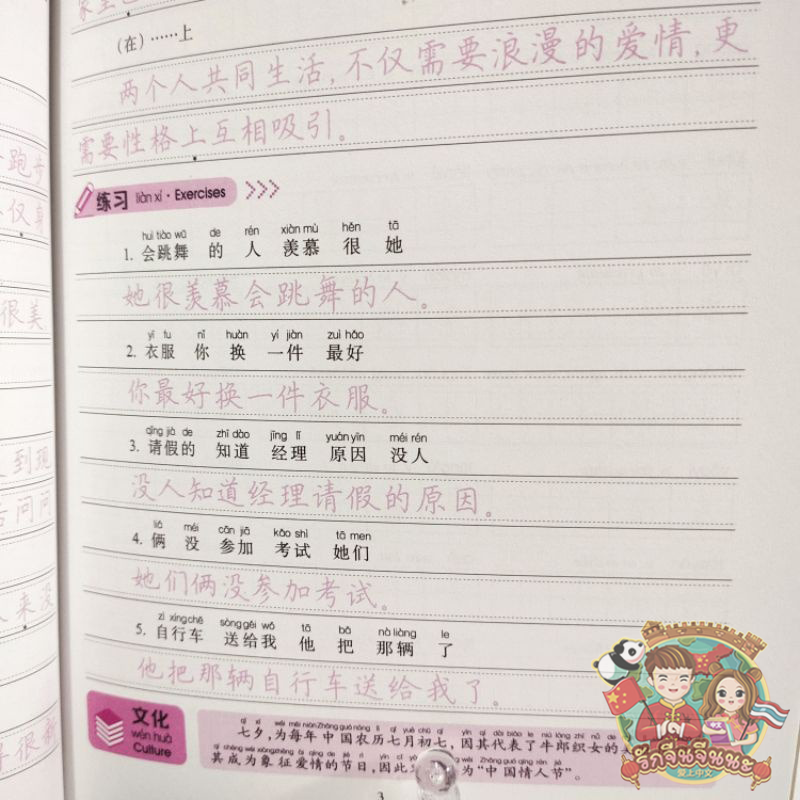 (在)……上
两个人共同生活,不仅需要浪漫的爱情,更
需要性格上互相吸引。
练习 liàn xí · Exercises
huì tiào wǔ de rén xiàn mù hěn tā
1. 会跳舞 的 人 羡慕 很 她
她很羡慕会跳舞的人。
yī fu nǐ huàn yí jiàn zuì hǎo
2. 衣服 你 换 一件 最好
你最好换一件衣服。
qǐng jià de zhī dào jīng lǐ yuán yīn méi rén
3. 请假的 知道 经理 原因 没人
没人知道经理请假的原因。
liǎ méi cān jiā kǎo shì tā men
4. 俩 没 参加 考试 她们
她们俩没参加考试。
zì xíng chē sòng gěi wǒ tā bǎ nà liàng le
5. 自行车 送给我 他 把 那辆 了
他把那辆自行车送给我了。
文化
wén huà
Culture
七夕,为每年中国农历七月初七,因其代表了牛郎织女的
其成为象征爱情的节日,因此
为“中国情人节”。
3
跑步
仅身
很美
到现
问问
来没
得很
รักจีนจีนนะ
爱上中文